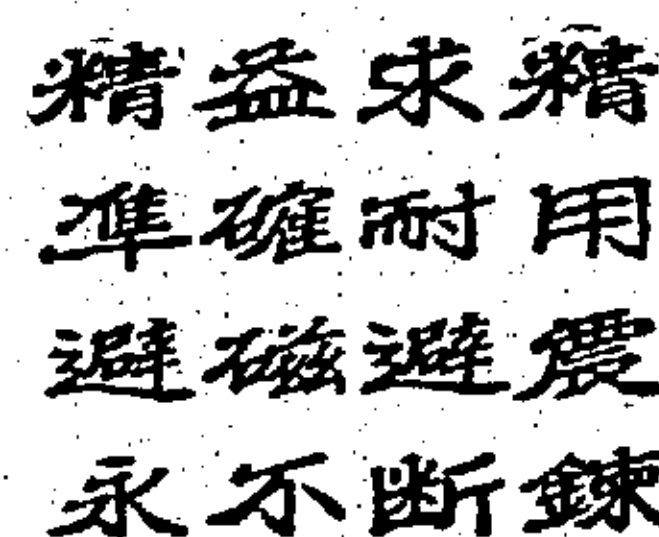 精益求精
準確耐用
避磁避震
永不断鍊